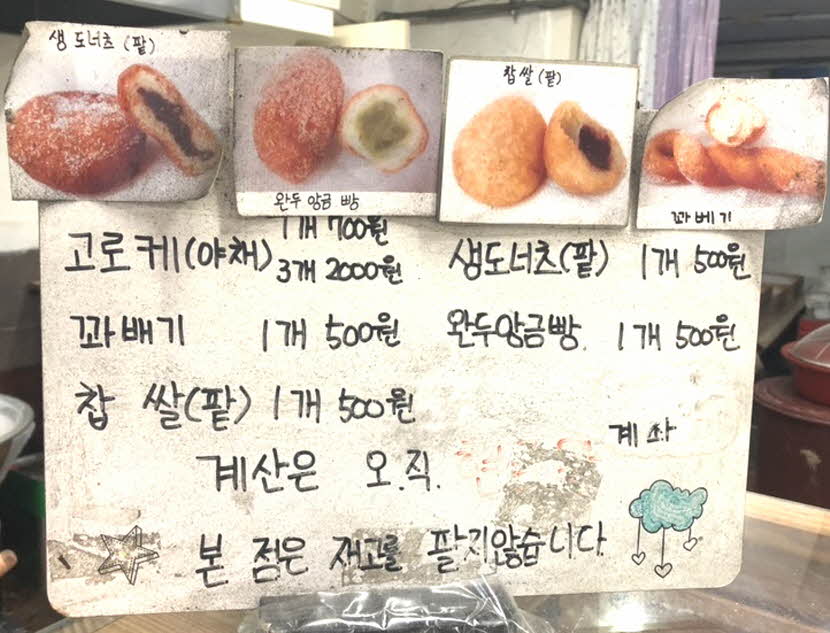 생도너츠(팥)
완두앙금빵
찹쌀(팥)
꽈베기
고로케(야채) 1개 700원
3개 2000원
생도너츠(팥) 1개 500원
꽈배기 1개 500원
완두앙금빵 1개 500원
찹쌀(팥) 1개 500원
계산은 오.직.
계좌
본 점은 재고를 팔지않습니다